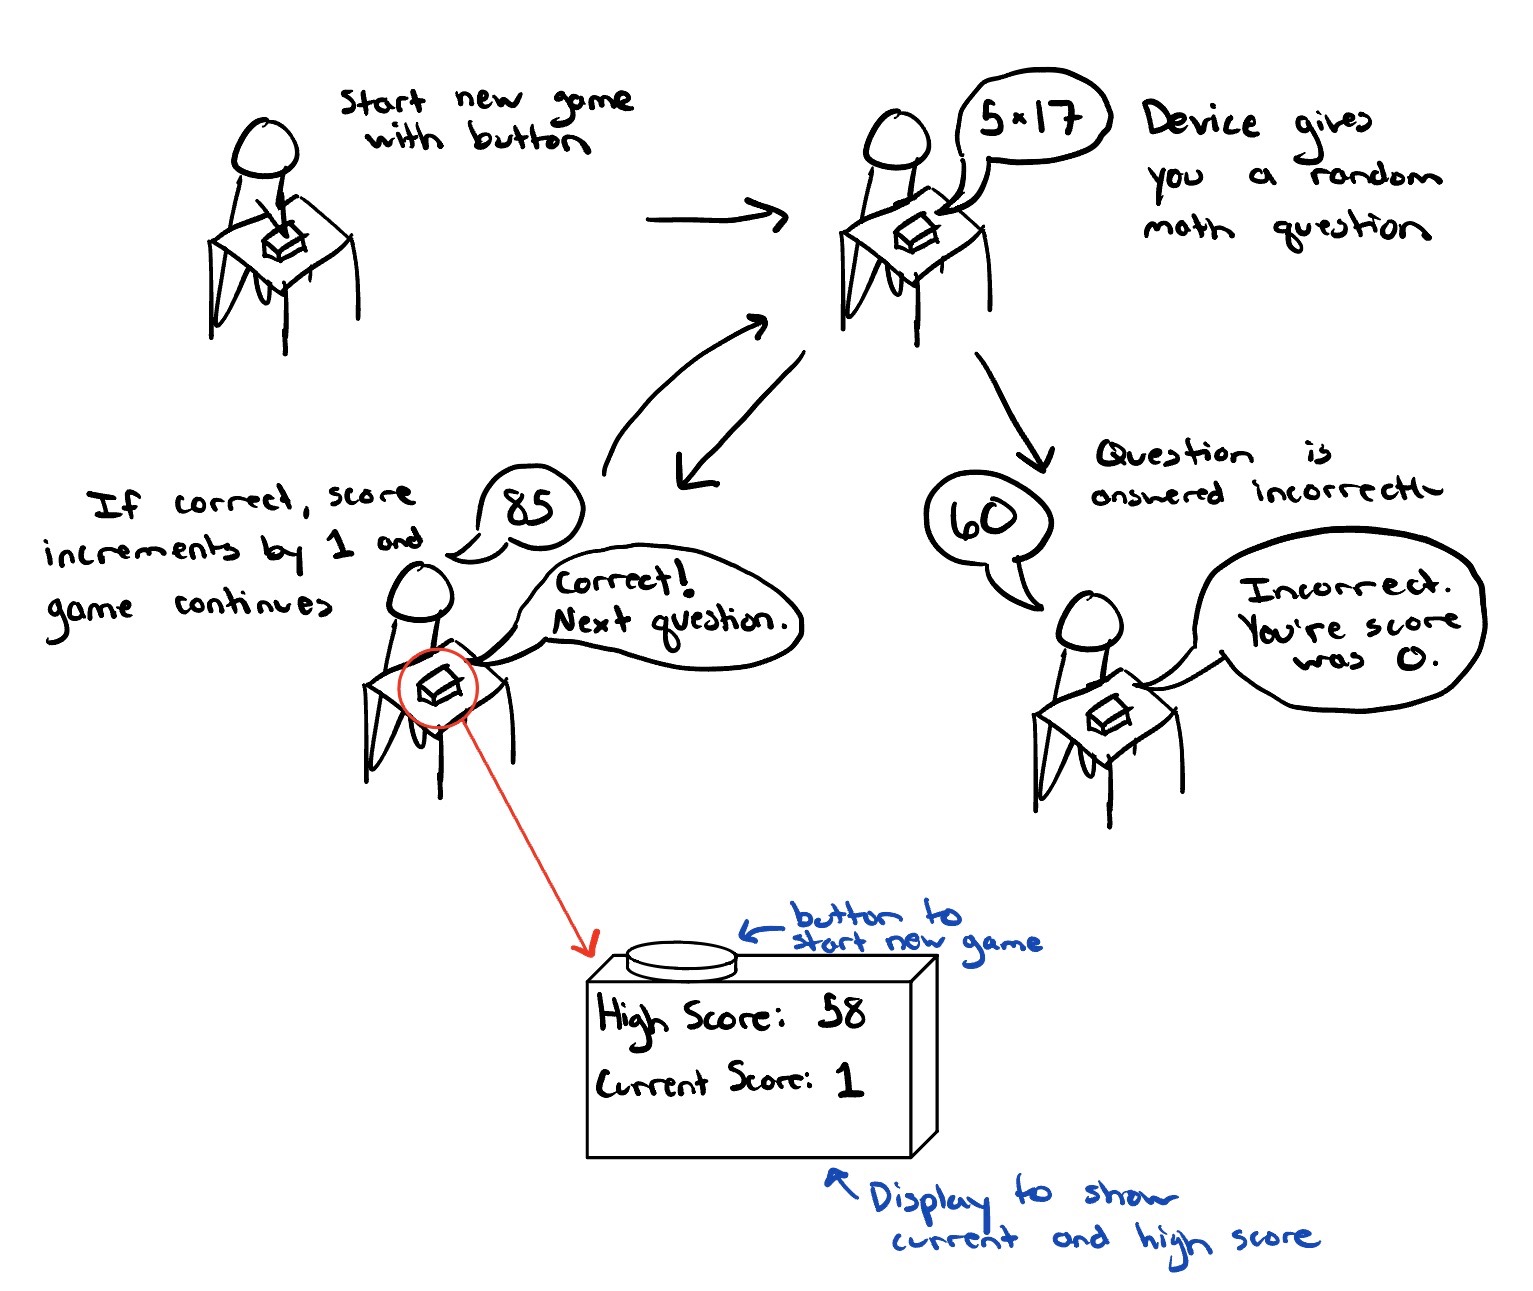 Start new game
with button
5 × 17
Device gives
you a random
math question
If correct, score
increments by 1 and
game continues
85
Correct!
Next question.
Question is
answered incorrectly
60
Incorrect.
You're score
was 0.
button to
start new game
High Score: 58
Current Score: 1
Display to show
current and high score